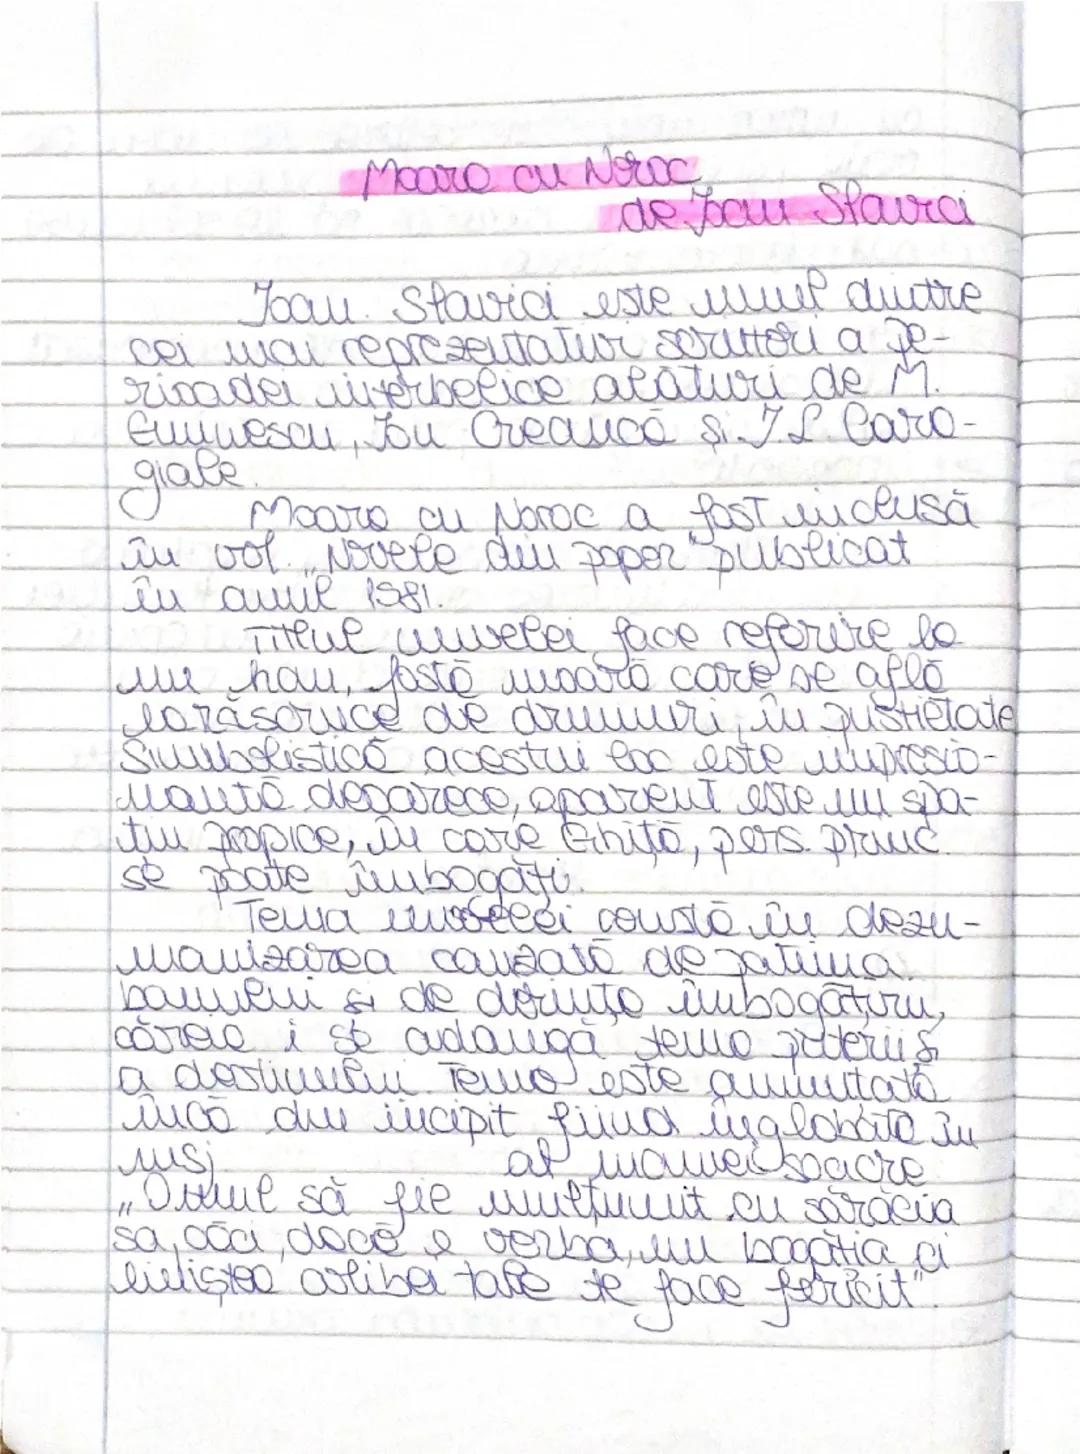 Moara cu Noroc
de Ioan Slavici
Ioan Slavici este unul dintre
cei mai reprezentativi scriitori a pe-
rioadei interbelice alături de M.
Eminescu, Ion Creangă și I.L. Cara-
giale.
Moara cu Noroc a fost inclusă
în vol. „Novele din popor" publicat
în anul 1981.
Titlul nuvelei face referire la
un han, fostă moară care se află
la răscruce de drumuri, în pustietate
Simbolistică acestui loc este impresio-
nantă deoarece, aparent este un spa-
țiu propice, în care Ghiță, pers. princ.
se poate îmbogăți.
Tema nuvelei constă în dezu-
manizarea cauzată de patima
banului și de dorința îmbogățirii,
căreia i se adaugă tema puterii și
a destinului. Tema este anunțată
încă din incipit fiind înglobată în
al mamei soacre
„Omul să fie mulțumit cu sărăcia
sa, căci, dacă e vorba, nu bogăția ci
liniștea colibei tale te face fericit".